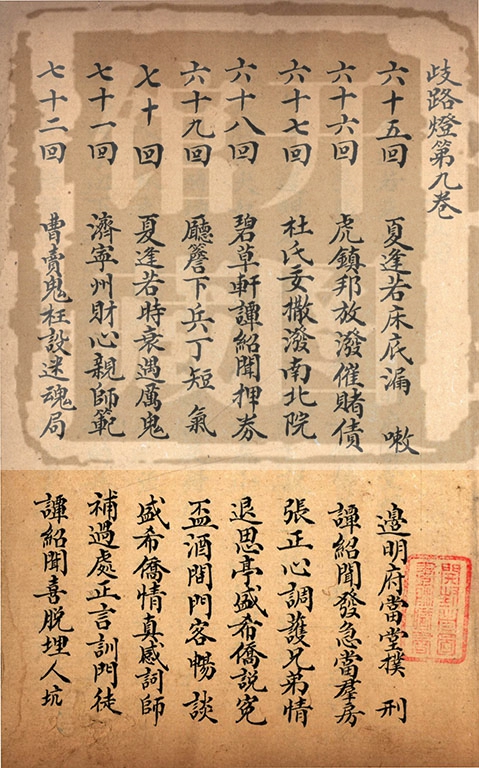 歧路燈第九卷
六十五回 夏逢若床底漏嗽 邊明府當堂撲刑
六十六回 虎鎮邦放潑催賭債 譚紹聞發急當羣房
六十七回 杜氏妄撒潑南北院 張正心調護兄弟情
六十八回 碧草軒譚紹聞押券 退思亭盛希僑說寃
六十九回 廳簷下兵丁短氣 盃酒間門客暢談
七十回 夏逢若時衰遇厲鬼 盛希僑情真感訶師
七十一回 濟寧州財心親師範 補過處正言訓門徒
七十二回 曹賣鬼枉設迷魂局 譚紹聞喜脫埋人坑